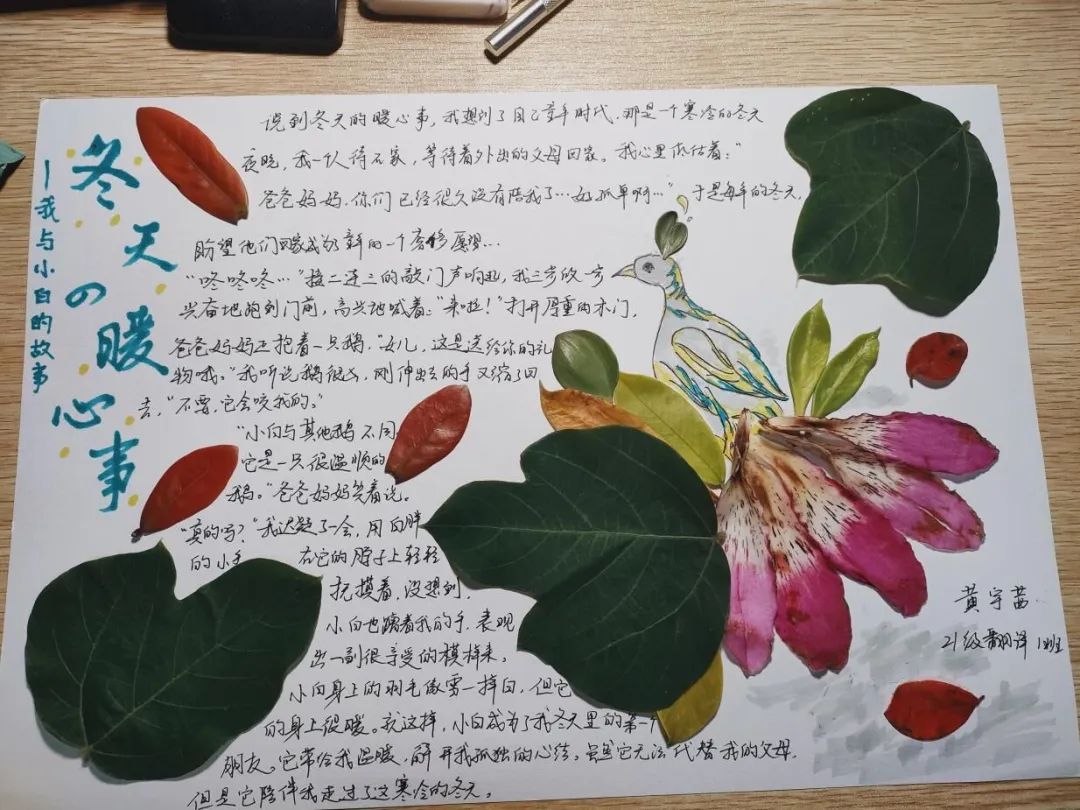 冬天の暖心事
—我与小白的故事
说到冬天的暖心事,我想到了自己童年时代,那是一个寒冷的冬天
夜晚,我一个人待在家,等待着外出的父母回家。我心里嘀咕着:"
爸爸妈妈,你们已经很久没有陪我了…好孤单啊…"于是每年的冬天,
盼望他们回家成为童年的一个奢侈愿望…
"咚咚咚…"接二连三的敲门声响起,我三步做一步
兴奋地跑到门前,高兴地喊着:"来啦!"打开厚重的木门,
爸爸妈妈正抱着一只鹅,"女儿,这是送给你的礼
物哦。"我听说鹅很凶,刚伸出去的手又缩了回
去,"不要,它会咬我的。"
"小白与其他鹅不同
它是一只很温顺的
鹅。"爸爸妈妈笑着说。
"真的吗?"我迟疑了一会,用白胖
的小手 在它的脖子上轻轻
抚摸着,没想到,
小白也蹭着我的手,表现
出一副很享受的模样来。
小白身上的羽毛像雪一样白,但它
的身上很暖。就这样,小白成为了我冬天里的第一个
朋友。它带给我温暖,解开我孤独的心结。虽然它无法代替我的父母,
但是它陪伴我走过了这寒冷的冬天。
黄宇茜
21级翻译1班